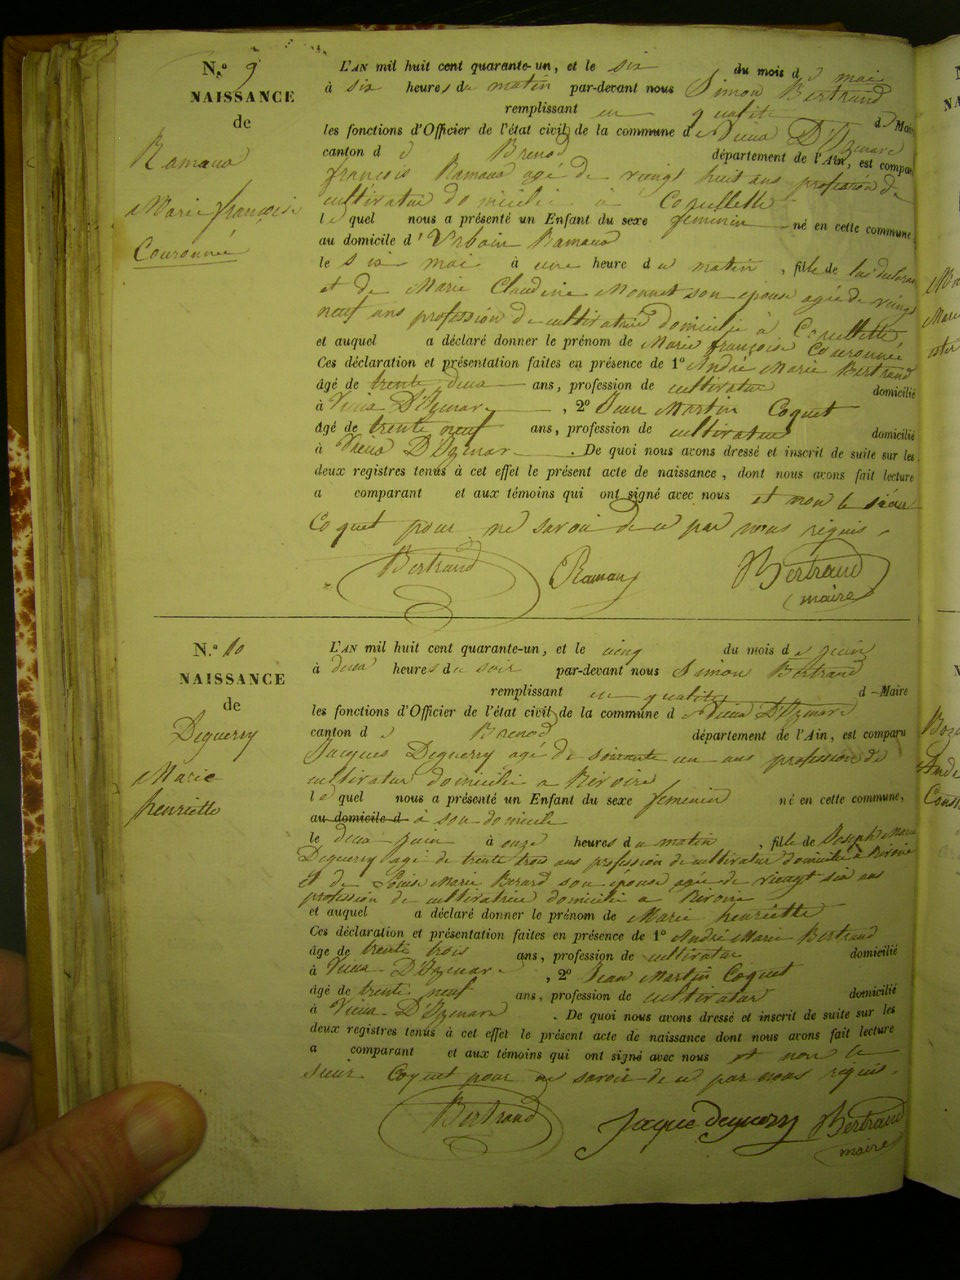 N.o 9
NAISSANCE
de
Ramaud
Marie françoise
Couronnée
L'AN mil huit cent quarante-un, et le six du mois d mai
à six heures du matin par-devant nous Simon Bertrand
remplissant en qualité d Maire
les fonctions d'Officier de l'état civil de la commune d Vieux D'Izenave
canton d Brenod département de l'Ain, est comparu
françois Ramaud agé de vingt huit ans profession de
cultivatur domicilié à Corullette
le quel nous a présenté un Enfant du sexe feminin né en cette commune,
au domicile d'Urbain Ramaud
le six mai à une heure du matin, fille de lui
et de Marie Claudine Monnet son épouse agée de vingt
neuf ans profession de cultivatrice domicilié à
et auquel a déclaré donner le prénom de Marie françoise Couronnée
Ces déclaration et présentation faites en présence de 1º André Marie Bertrand
âgé de trente deux ans, profession de cultivatur domicilié
à Vieux D'Izenave, 2º Jean Martin Coquet
âgé de trente neuf ans, profession de cultivatur domicilié
à Vieux D'Izenave. De quoi nous avons dressé et inscrit de suite sur les
deux registres tenus à cet effet le présent acte de naissance, dont nous avons fait lecture
a comparant et aux témoins qui ont signé avec nous et non le sieur
Coquet pour ne savoir de ce par nous riquis.
Bertrand Ramaud Bertrand
maire
N.o 10
NAISSANCE
de
Deguerry
Marie
henriette
L'AN mil huit cent quarante-un, et le cinq du mois de juin
à deux heures du soir par-devant nous Simon Bertrand
remplissant en qualité d Maire
les fonctions d'Officier de l'état civil de la commune d Vieux D'Izenave
canton d Brenod département de l'Ain, est comparu
Jacques Deguerry agé de soixante un ans profession de
cultivatur domicilié a Riroire
le quel nous a présenté un Enfant du sexe feminin né en cette commune,
au domicile d à son domicile
le deux juin à onze heures du matin, fille de Joseph Marie
Deguerry agé de trente trois ans profession de cultivatur domicilié à Riroire
et de Louise Marie Berard son épouse agée de vingt six ans
profession de cultivatrice domicilié a Riroire
et auquel a déclaré donner le prénom de Marie henriette
Ces déclaration et présentation faites en présence de 1º André Marie Bertrand
âge de trente trois ans, profession de cultivatur domicilié
à Vieux D'Izenave, 2º Jean Martin Coquet
âgé de trente neuf ans, profession de cultivatur domicilié
à Vieux D'Izenave. De quoi nous avons dressé et inscrit de suite sur les
deux registres tenus à cet effet le présent acte de naissance dont nous avons fait lecture
a comparant et aux témoins qui ont signé avec nous et non le
sieur Coquet pour ne savoir de ce par nous riquis.
Bertrand Jacque deguerry Bertrand
maire